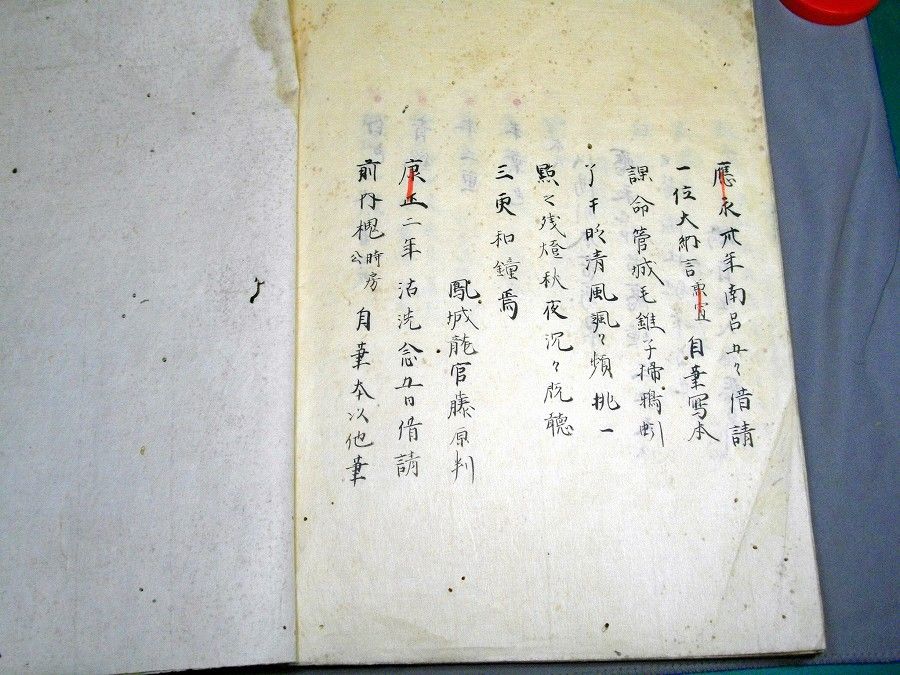 應永卅年南呂五々借請
一位大納言 自筆写本
課命管城毛錐子掃鴉蚓
了于時清風颯々頻挑一
點之残燈秋夜沉々既聴
三更和鐘焉
鳳城龍官藤原判
康正二年沽洗念五日借請
前内槐時房公 自筆本以他筆